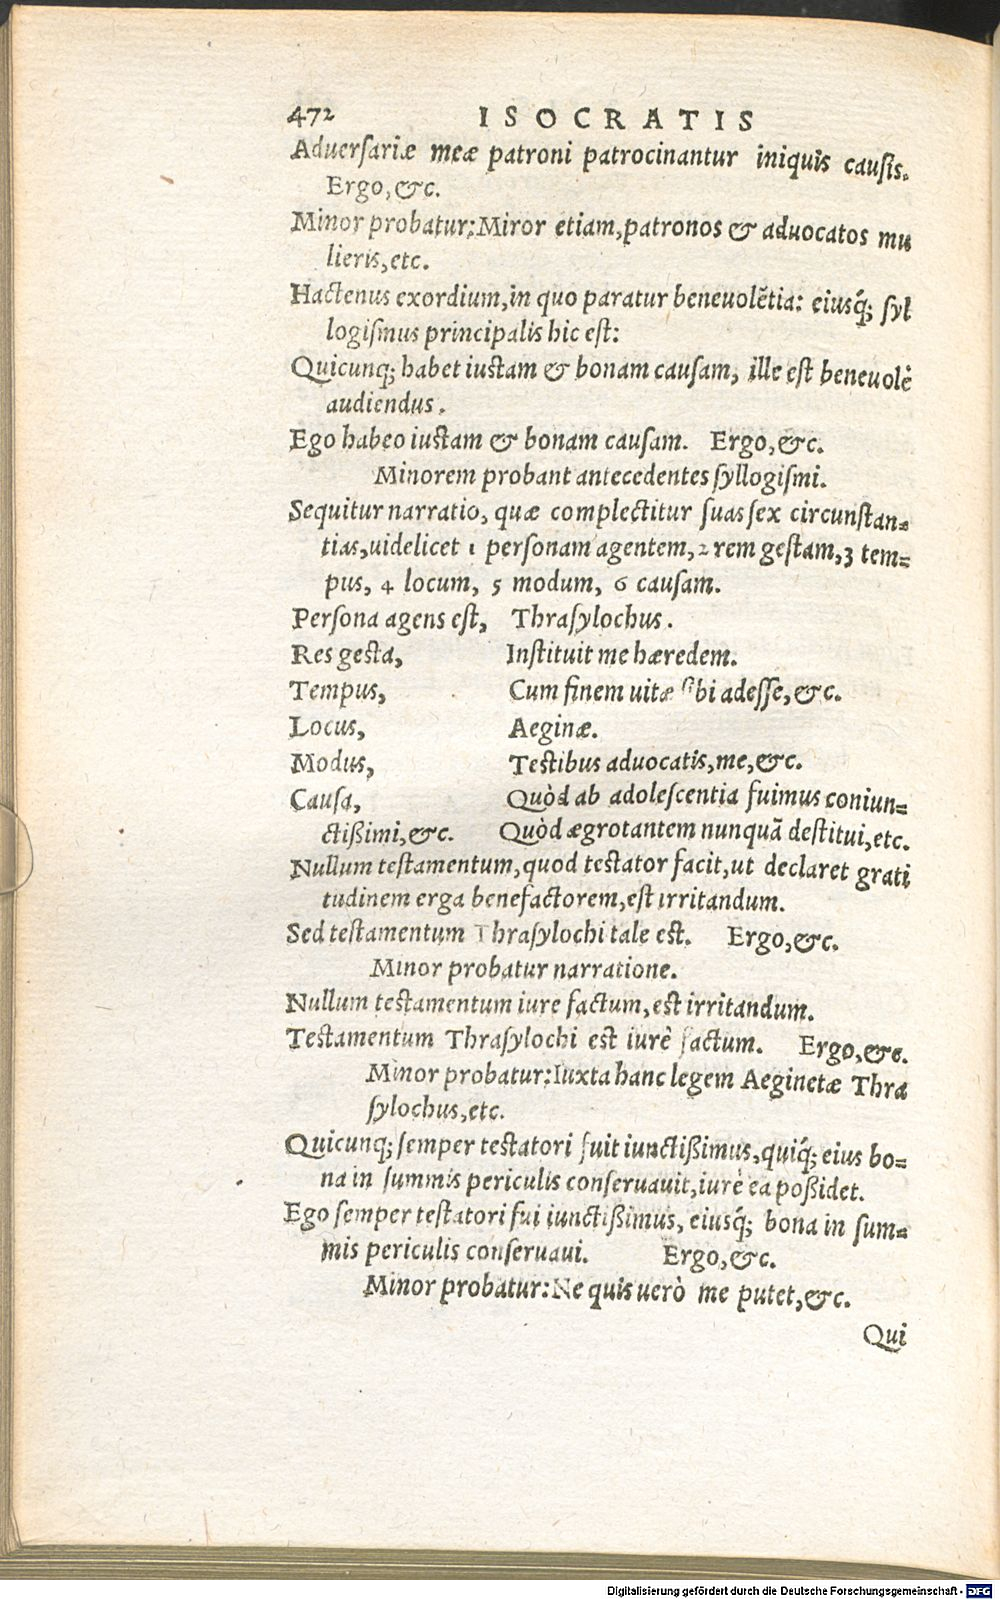 472 ISOCRATIS
Aduersariæ meæ patroni patrocinantur iniquis causis.
Ergo, &c.
Minor probatur: Miror etiam, patronos & aduocatos mu
lieris, etc.
Hactenus exordium, in quo paratur beneuolẽtia: eiusq́; syl
logismus principalis hic est:
Quicunq; habet iustam & bonam causam, ille est beneuolè
audiendus.
Ego habeo iustam & bonam causam. Ergo, &c.
Minorem probant antecedentes syllogismi.
Sequitur narratio, quæ complectitur suas sex circunstan=
tias, uidelicet 1 personam agentem, 2 rem gestam, 3 tem=
pus, 4 locum, 5 modum, 6 causam.
Persona agens est, Thrasylochus.
Res gesta, Instituit me hæredem.
Tempus, Cum finem uitæ sibi adesse, &c.
Locus, Aeginæ.
Modus, Testibus aduocatis, me, &c.
Causa, Quòd ab adolescentia fuimus coniun=
ctißimi, &c. Quòd ægrotantem nunquã destitui, etc.
Nullum testamentum, quod testator facit, ut declaret grati
tudinem erga benefactorem, est irritandum.
Sed testamentum Thrasylochi tale est. Ergo, &c.
Minor probatur narratione.
Nullum testamentum iure factum, est irritandum.
Testamentum Thrasylochi est iurè factum. Ergo, &c.
Minor probatur: Iuxta hanc legem Aeginetæ Thra
sylochus, etc.
Quicunq; semper testatori fuit iunctißimus, quiq́; eius bo=
na in summis periculis conseruauit, iurè ea poßidet.
Ego semper testatori fui iunctißimus, eiusq́; bona in sum=
mis periculis conseruaui. Ergo, &c.
Minor probatur: Ne quis uerò me putet, &c.
Qui
Digitalisierung gefördert durch die Deutsche Forschungsgemeinschaft - DFG